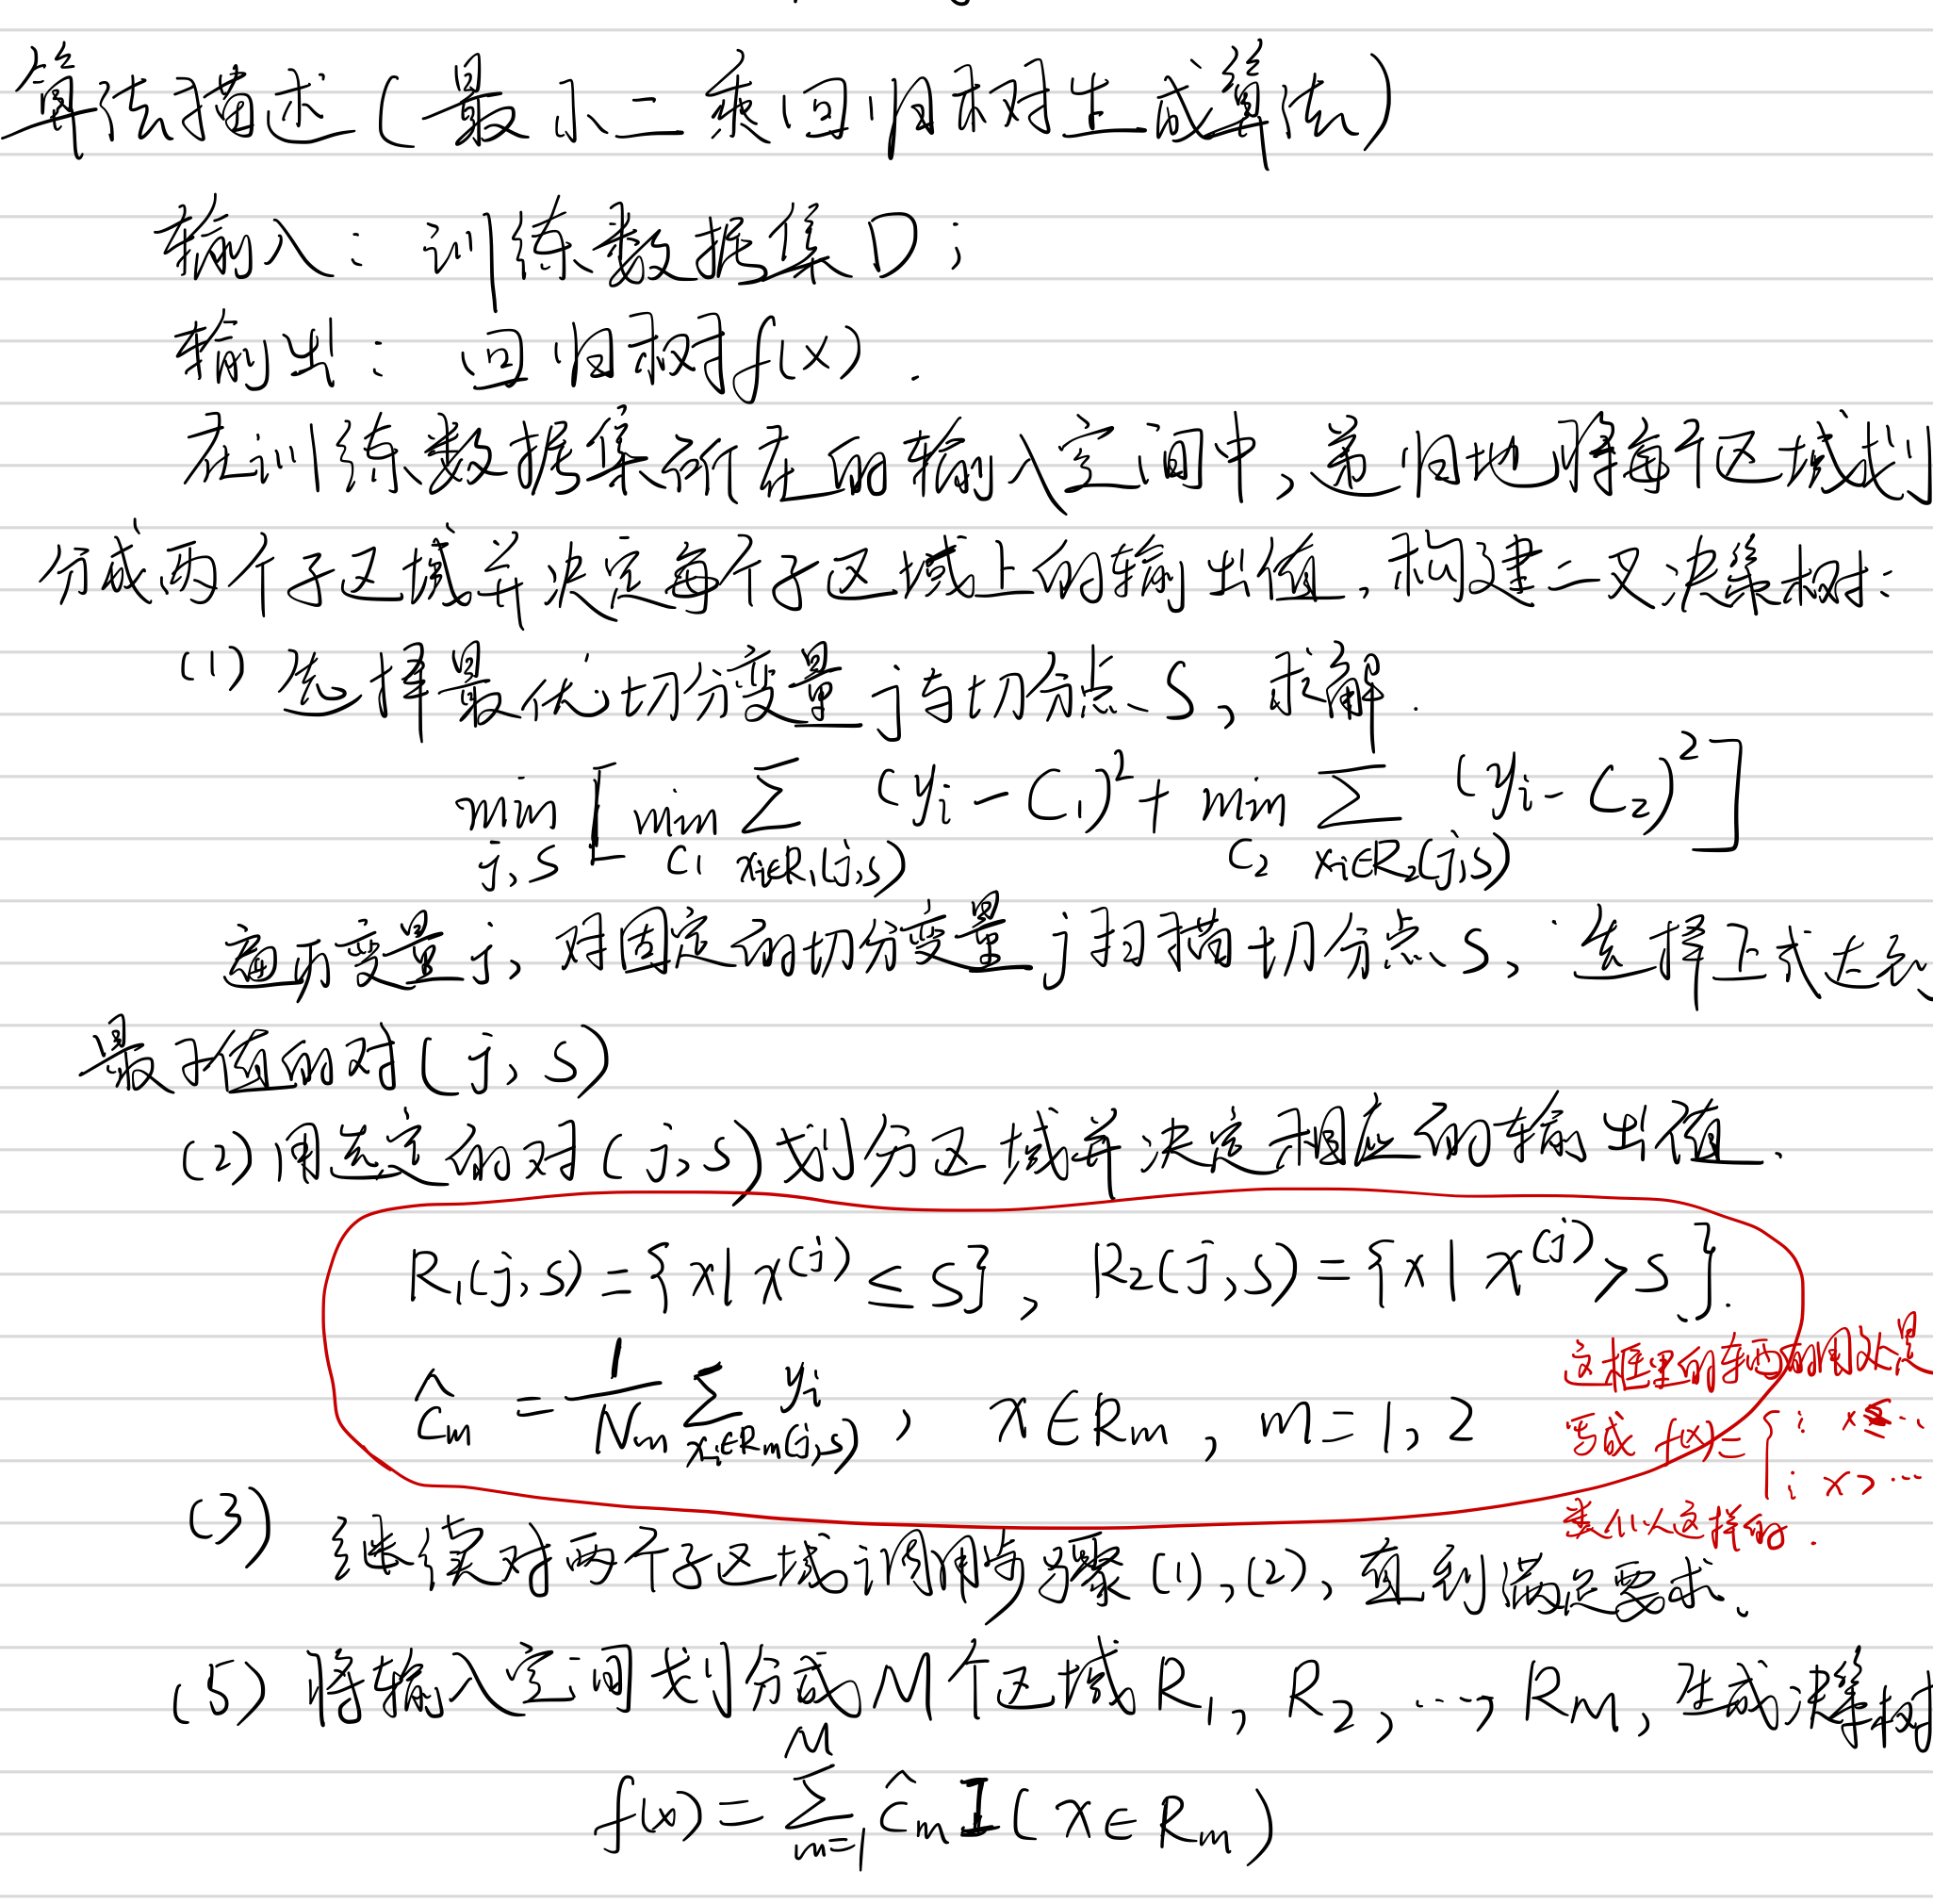 算法描述(最小二乘回归树生成算法)
输入: 训练数据集D;
输出: 回归树f(x).
在训练数据集所在的输入空间中,递归地将每个区域划
分成两个子区域并决定每个子区域上的输出值,构建二叉决策树:
(1) 选择最优切分变量j与切分点S,求解.
min_{j,s} [min_{C_1} Σ_{x_i∈R_1(j,s)} (y_i - C_1)^2 + min_{C_2} Σ_{x_i∈R_2(j,s)} (y_i - C_2)^2]
遍历变量j,对固定的切分变量j扫描切分点S,选择上式达到
最小值的对(j,s)
(2)用选定的对(j,s)划分区域并决定相应的输出值.
R_1(j,s)={x|x^{(j)}≤s}, R_2(j,s)={x|x^{(j)}>s}.
ĉ_m = 1/N_m Σ_{x_i∈R_m(j,s)} y_i, x∈R_m, m=1,2
这框里的东西的用处是
写成 f(x)={ ⋮ x≤…
⋮ x>…
类似这样的.
(3) 继续对两个子区域调用步骤(1),(2),直到满足要求.
(5) 将输入空间划分成M个区域R_1, R_2, …, R_M,生成决策树
f(x)=Σ_{m=1}^{M} ĉ_m I(x∈R_m)